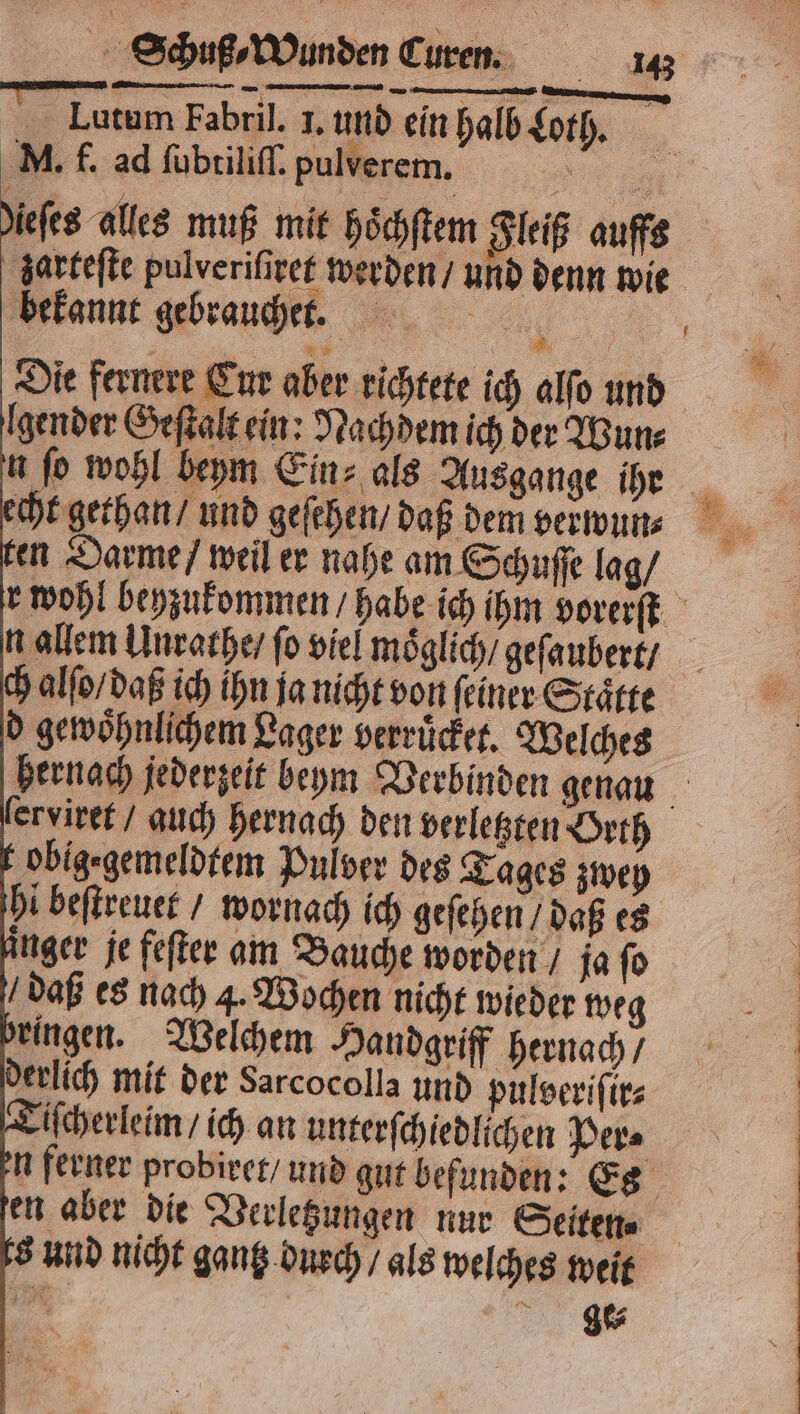 Schuß-Wunden Curen. 143
Lutum Fabril. 1. und ein halb Loth.
M. f. ad ſubtiliſſ. pulverem.
dieſes alles muß mit hoͤchſtem Fleiß auffs
zarteſte pulveriſiret werden / und denn wie
bekannt gebrauchet.
Die fernere Cur aber richtete ich alſo und
lgender Geſtalt ein: Nachdem ich der Wun-
n ſo wohl beym Ein- als Ausgange ihr
echt gethan / und geſehen / daß dem verwun-
ten Darme / weil er nahe am Schuſſe lag /
r wohl beyzukommen / habe ich ihm vorerſt
n allem Unrathe / ſo viel moͤglich / geſaubert /
ch alſo / daß ich ihn ja nicht von ſeiner Staͤtte
d gewoͤhnlichem Lager verruͤcket. Welches
hernach jederzeit beym Verbinden genau
ſerviret / auch hernach den verletzten Orth
t obig-gemeldtem Pulver des Tages zwey
hi beſtreuet / wornach ich geſehen / daß es
aͤnger je feſter am Bauche worden / ja ſo
/ daß es nach 4. Wochen nicht wieder weg
bringen. Welchem Handgriff hernach /
derlich mit der Sarcocolla und pulveriſir-
Tiſcherleim / ich an unterſchiedlichen Per-
en ferner probiret / und gut befunden: Es
ten aber die Verletzungen nur Seiten-
ts und nicht gantz durch / als welches weit
ge-